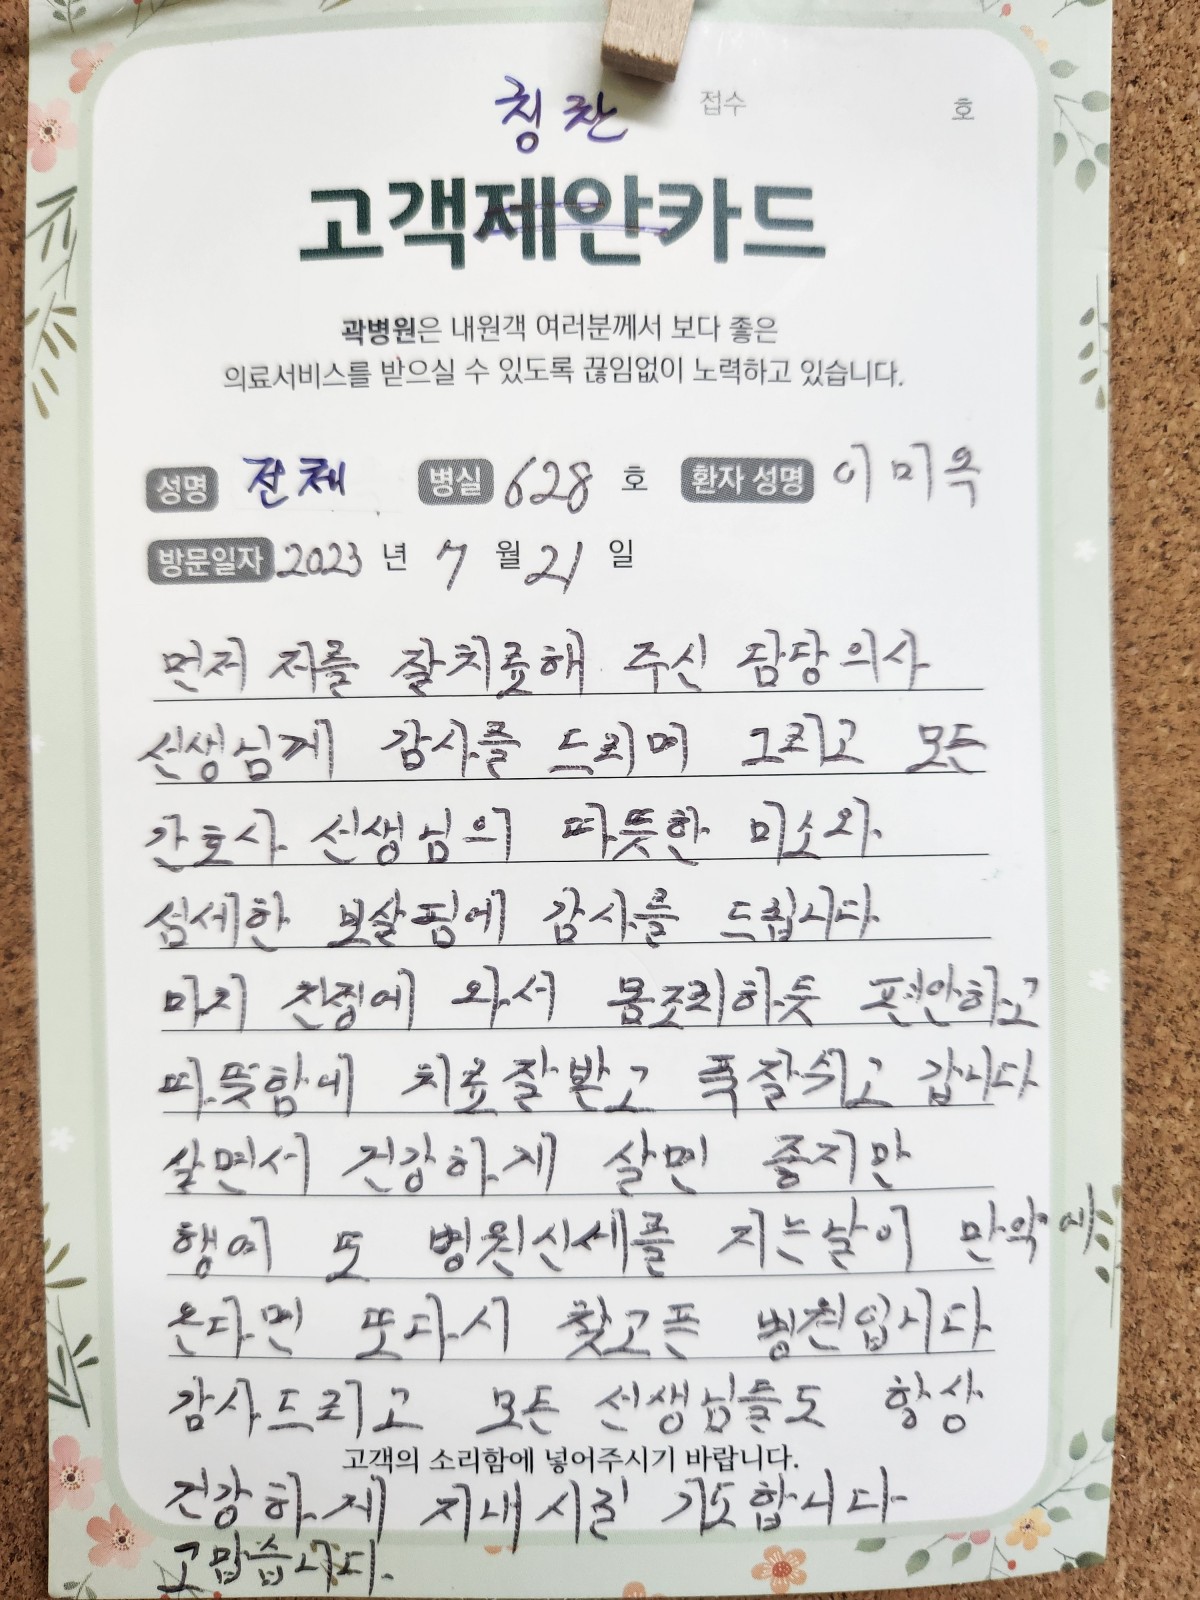 칭찬
접수 호
고객제안카드
곽병원은 내원객 여러분께서 보다 좋은
의료서비스를 받으실 수 있도록 끊임없이 노력하고 있습니다.
성명 전체 병실 628 호 환자 성명 이미옥
방문일자 2023 년 7 월 21 일
먼저 저를 잘치료해 주신 담당의사
선생님께 감사를 드리며 그리고 모든
간호사 선생님의 따뜻한 미소와
섬세한 보살핌에 감사를 드립니다
마치 친정에 와서 몸조리하듯 편안하고
따뜻함에 치료잘받고 푹잘쉬고 갑니다
살면서 건강하게 살면 좋지만
행여 또 병원신세를 지는날이 만약에
온다면 또다시 찾고픈 병원입니다
감사드리고 모든 선생님들도 항상
고객의 소리함에 넣어주시기 바랍니다.
건강하게 지내시길 기도합니다
고맙습니다.